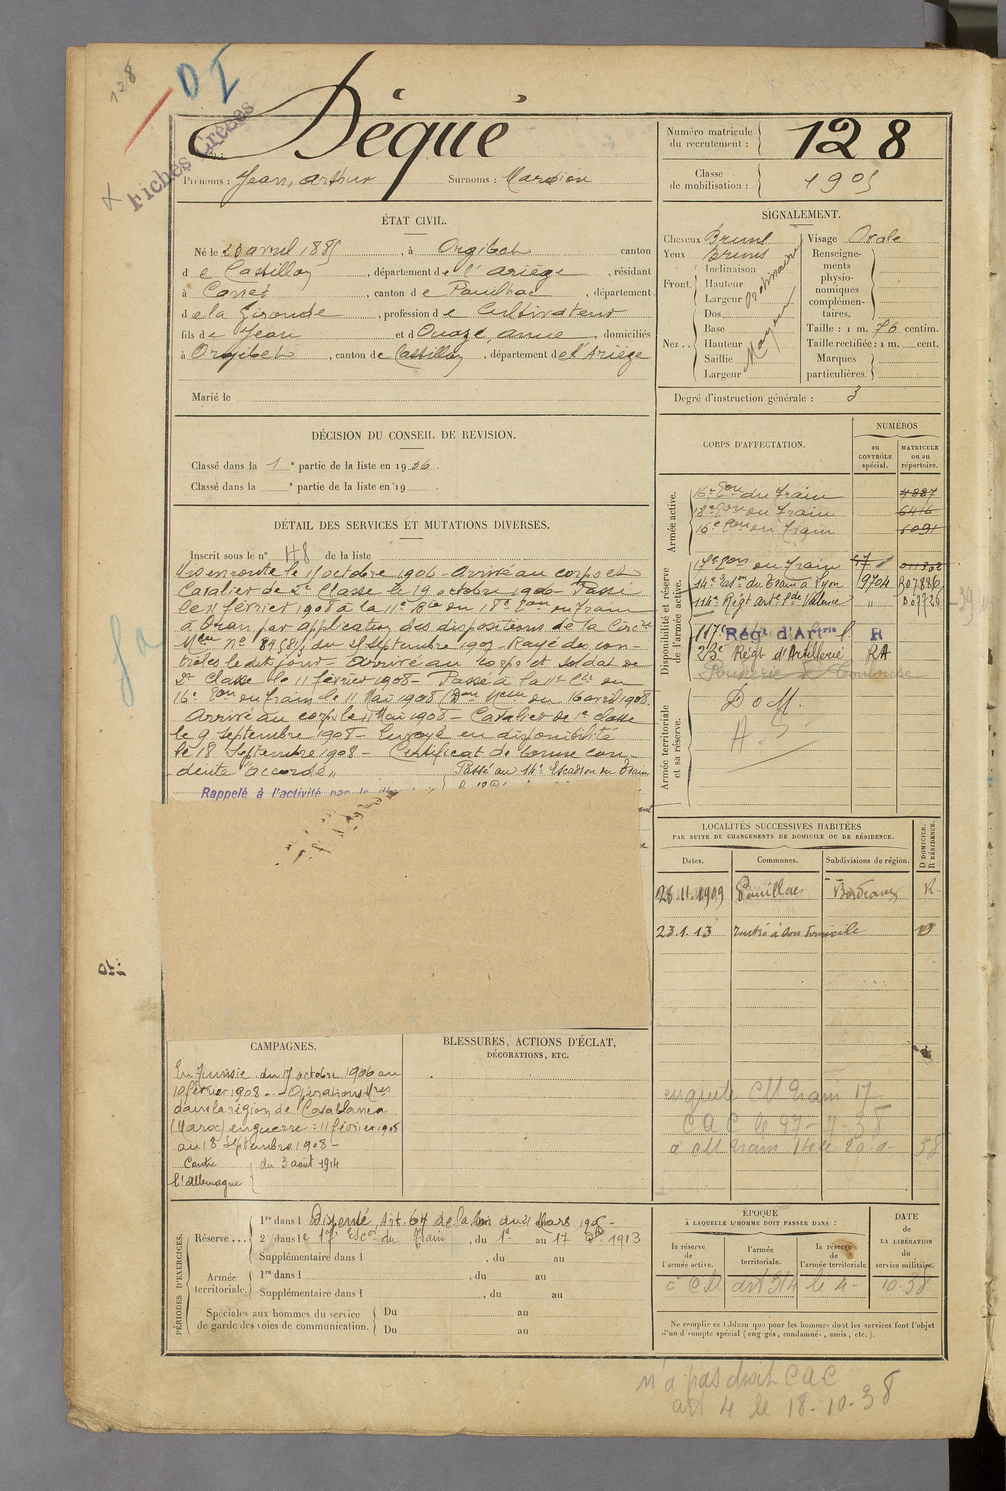 128
D I
Fiches Créées
Dequé
Numéro matricule du recrutement : 128
Prénoms : Jean, Arthur Surnoms : Marsion
Classe de mobilisation : 1905
ÉTAT CIVIL.
Né le 20 avril 1885, à Orgibet canton
de Castillon, département de l'Ariège, résidant
à canton de département
de la Gironde, profession de Cultivateur
fils de Jean et d anne, domiciliés
à Orgibet, canton de Castillon, département de l'Ariège
Marié le
SIGNALEMENT.
Cheveux Bruns Visage Ovale
Yeux Bruns
Front. Inclinaison Hauteur Largeur
Nez.. Dos Base Hauteur Saillie Largeur Moyen
Renseignements physionomiques complémentaires.
Taille : 1 m. 76 centim.
Taille rectifiée : 1 m. cent.
Marques particulières.
Degré d'instruction générale : 3
DÉCISION DU CONSEIL DE REVISION.
Classé dans la 1e partie de la liste en 1906.
Classé dans la e partie de la liste en 19
DÉTAIL DES SERVICES ET MUTATIONS DIVERSES.
Inscrit sous le n° 118 de la liste
Mis en route le octobre 1906 - Arrivé au corps et
Cavalier de 2e Classe le 19 octobre 1906 - Passé
le 11 février 1908 à la 11e Cie du 18e Eon du train
à Oran par application des dispositions de la Circre
Mlle N° 84 du Septembre 190 - Rayé des con-
trôles le dit jour - Arrivé au corps et soldat de
2e classe le 11 février 1908 - Passé à la 11e Cie du
16e Eon du train le 11 Mai 1908 (Don Melle du 16 avril 1908
Arrivé au corps le 11 Mai 1908 - Cavalier de 1e classe
le 9 septembre 1908 - Envoyé en disponibilité
le 18 Septembre 1908 - Certificat de bonne con-
duite "accordé"
Passé au 14e Escadron du Train
Rappelé à l'activité par le
CORPS D'AFFECTATION.
NUMÉROS
au CONTRÔLE spécial.
MATRICULE ou au répertoire.
Armée active.
16e Eon du train 4887
18e Eon du train 6416
16e Eon du train 6091
Disponibilité et réserve de l'armée active.
17e Eon du train
14e Esm du Train à Lyon 9704
114e Régt artie Lde Valence "
117e Régt d'Artrie R
23e Régt d'Artillerie RA
Poudrerie de Toulouse
Armée territoriale et sa réserve.
D o M.
A. S
LOCALITÉS SUCCESSIVES HABITÉES
PAR SUITE DE CHANGEMENTS DE DOMICILE OU DE RÉSIDENCE.
Dates. Communes. Subdivisions de région. D DOMICILE. R RÉSIDENCE.
28.11.1909 Pauillac Bordeaux R
23.1.13 rentré à son domicile D
CAMPAGNES.
En Tunisie du 17 octobre 1906 au
10 février 1908 - Opérations Mres
dans la région de Casablanca
(Maroc) en guerre : 11 février 1908
au 18 Septembre 1908 -
Contre l'Allemagne du 3 août 1914
BLESSURES, ACTIONS D'ÉCLAT,
DÉCORATIONS, ETC.
enquete CM Gram 17
C A C le 27-7-38
PÉRIODES D'EXERCICES.
Réserve...
1re dans l Dispensé, Art 64 de la loi du 21 Mars 1905 -
2e dans le 17e Escon du Train, du 1e au 17 1913
Supplémentaire dans l , du au
Armée territoriale.
1re dans l , du au
Supplémentaire dans l , du au
Spéciales aux hommes du service de garde des voies de communication.
Du au
Du au
ÉPOQUE
À LAQUELLE L'HOMME DOIT PASSER DANS :
la réserve de l'armée active.
l'armée territoriale.
la réserve de l'armée territoriale
DATE de LA LIBÉRATION du service militaire.
art 314 le 4 - 10-38
Ne remplir ce tableau que pour les hommes dont les services font l'objet
d'un décompte spécial (engagés, condamnés, omis, etc.).
n'a pas droit C A C
art 4 le 18-10-38